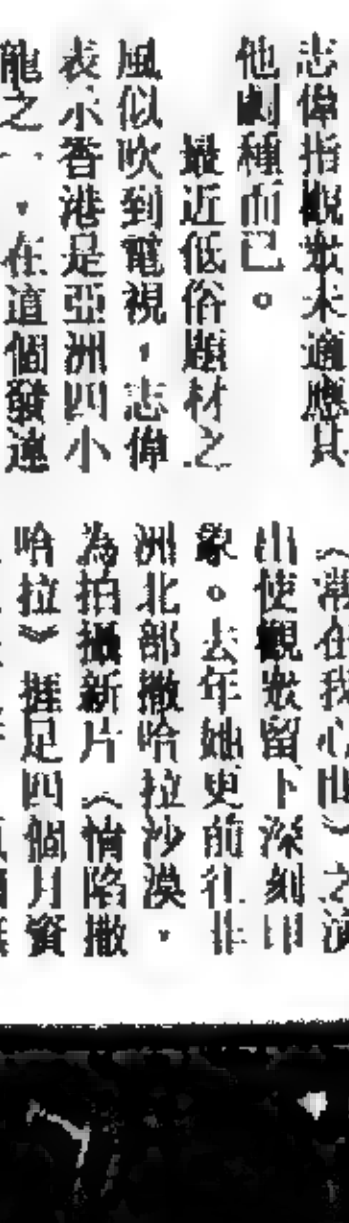 志偉指觀衆未適應其
他劇種而已。
最近低俗題材之
風似吹到電視，志偉
表示香港是亞洲四小
龍之一，在這個發達
《藏在我心中》之演
出使觀衆留下深刻印
象。去年她更前往非
洲北部撒哈拉沙漠，
為拍攝新片《情陷撒
哈拉》捱足四個月資